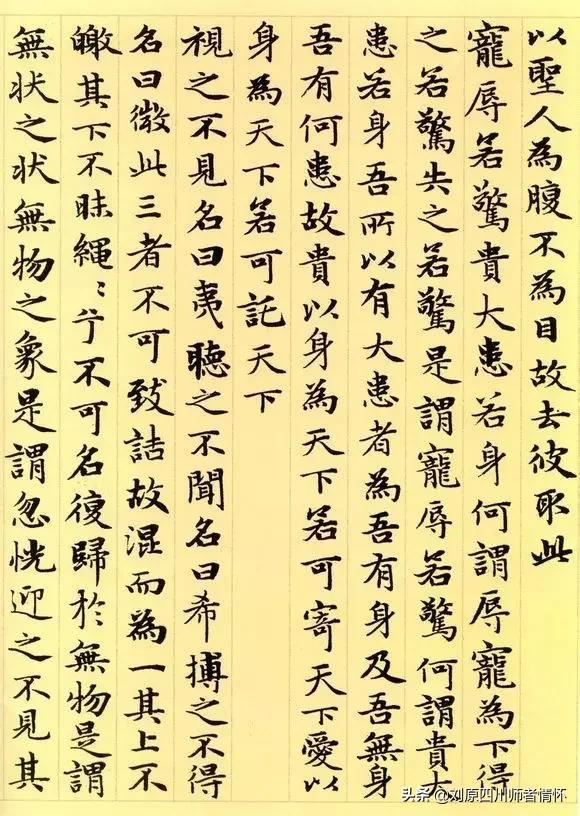 以聖人為腹不為目故去彼取此
寵辱若驚貴大患若身何謂辱寵為下得
之若驚失之若驚是謂寵辱若驚何謂貴大
患若身吾所以有大患者為吾有身及吾無身
吾有何患故貴以身為天下若可寄天下愛以
身為天下若可託天下
視之不見名曰夷聴之不聞名曰希搏之不得
名曰微此三者不可致詰故混而為一其上不
皦其下不昧繩〻兮不可名復歸於無物是謂
無状之状無物之象是謂忽恍迎之不見其
头条 @刘原四川师者情怀